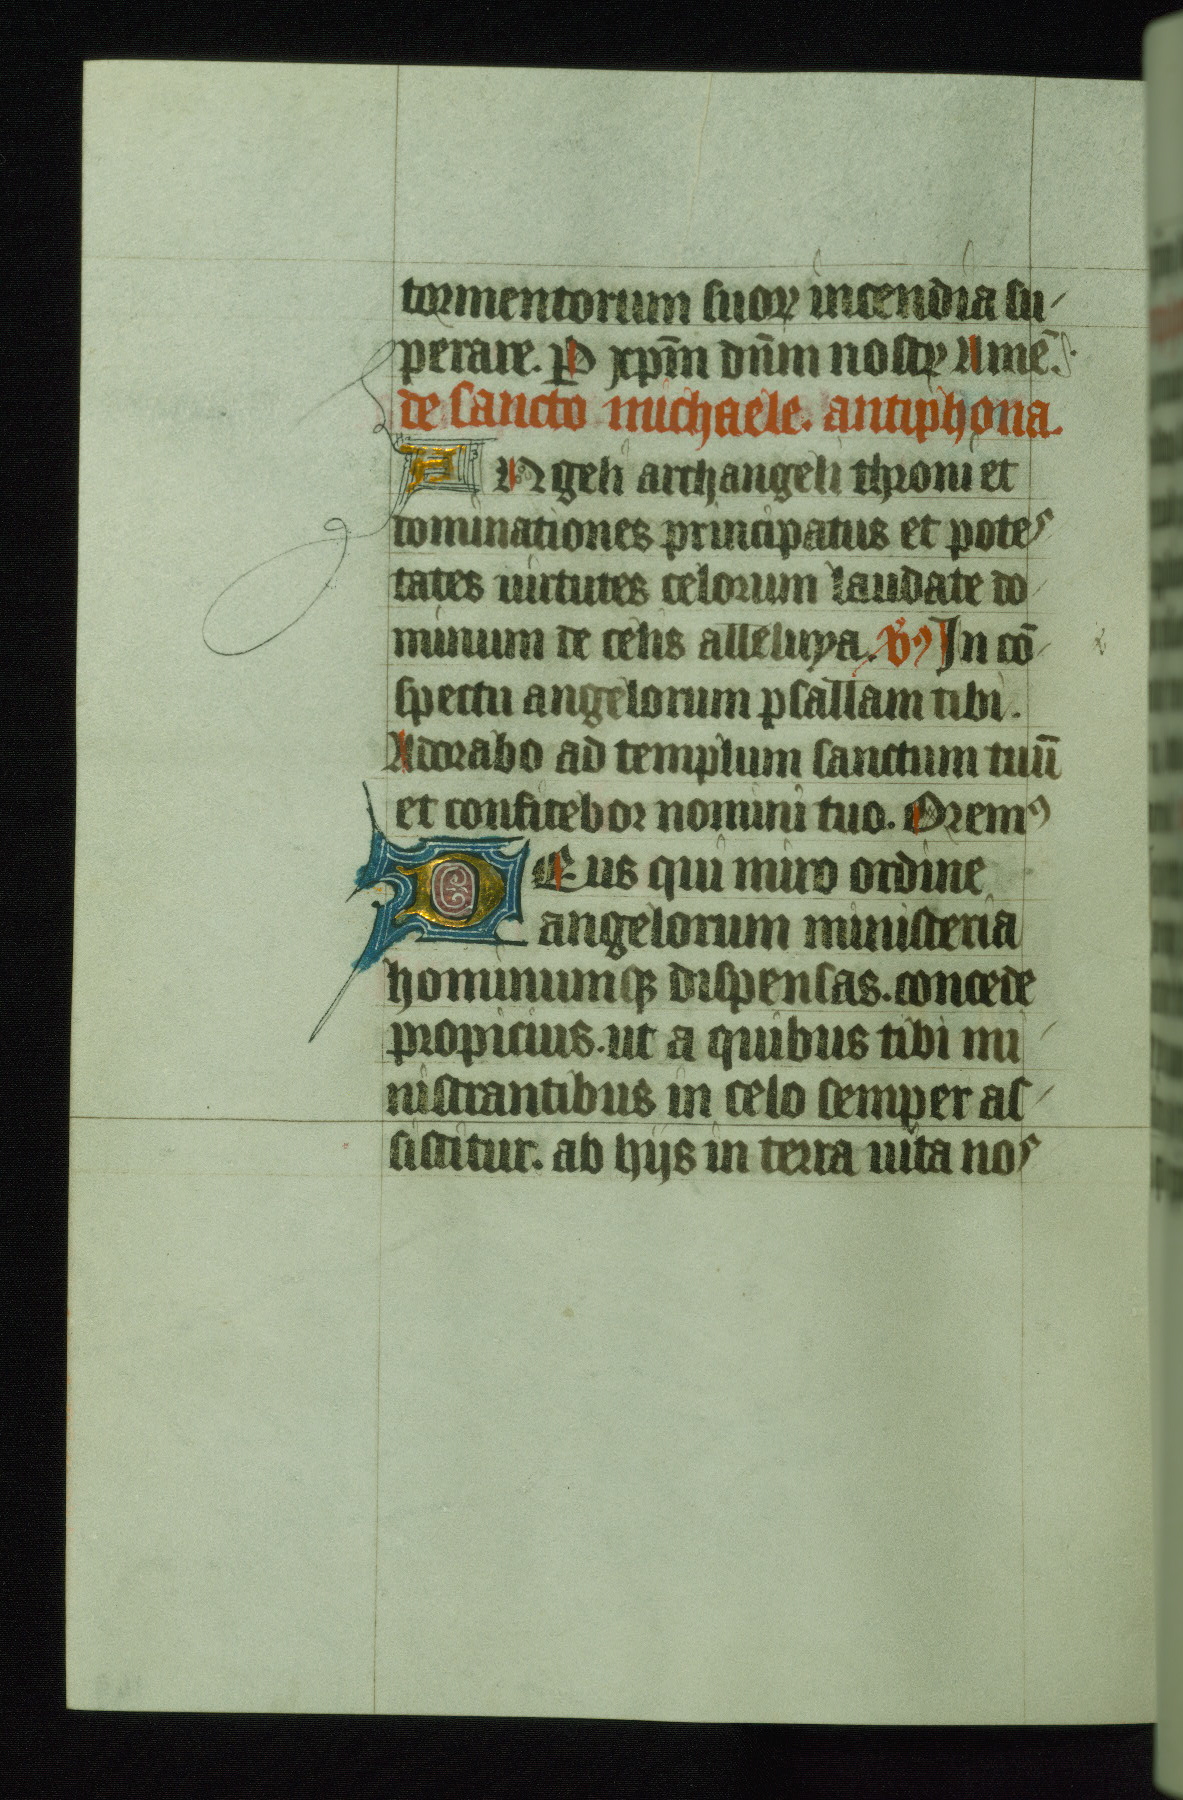 tormentorum suoꝝ incendia su
perare. P xp̄m dn̄m nostꝝ Amē.
de sancto michaele. antiphona.
ANgeli archangeli throni et
dominationes principatus et potes
tates uirtutes celorum laudate do
minum de celis alleluya. In cō
spectu angelorum psallam tibi.
Adorabo ad templum sanctum tuū
et confitebor nomini tuo. Oremꝯ
DEus qui miro ordine
angelorum ministeria
hominumqꝫ dispensas. concede
propicius. ut a quibus tibi mi
nistrantibus in celo semper as
sistitur. ab hijs in terra uita nos